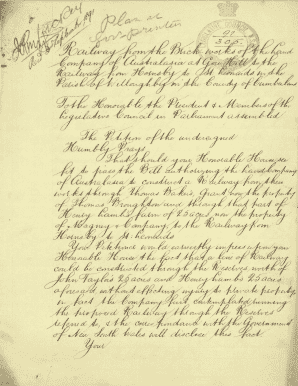 Plan as
for printer
Railway from the Brick works of the Land
Company of Australasia at Gore Hill to the
Railway from Hornsby to St Leonards in the
Parish of Willoughby in the County of Cumberland
To the Honorable the President & Members of the
Legislative Council in Parliament assembled
The Petition of the undersigned
Humbly Prays
That should your Honorable House
to pass the Bill authorizing the Land Company
of Australasia to construct a Railway from their
works through Thomas Grant now the property
of Thomas Broughton and through that part of
Henry Lamb's farm of 25 acres now the property
of & Company to the Railway from
Hornsby to St Leonards
Your Petitioner would earnestly impress upon your
Honorable House the fact that a line of Railway
could be constructed through the Reserves north of
John Taylor's 25 acres and Henry Lamb's 25 acres
aforesaid without effecting injury to private property
in fact the Company first contemplated running
the proposed Railway through the Reserves
referred to & the correspondence with the Government
of New South Wales will disclose this fact
Your